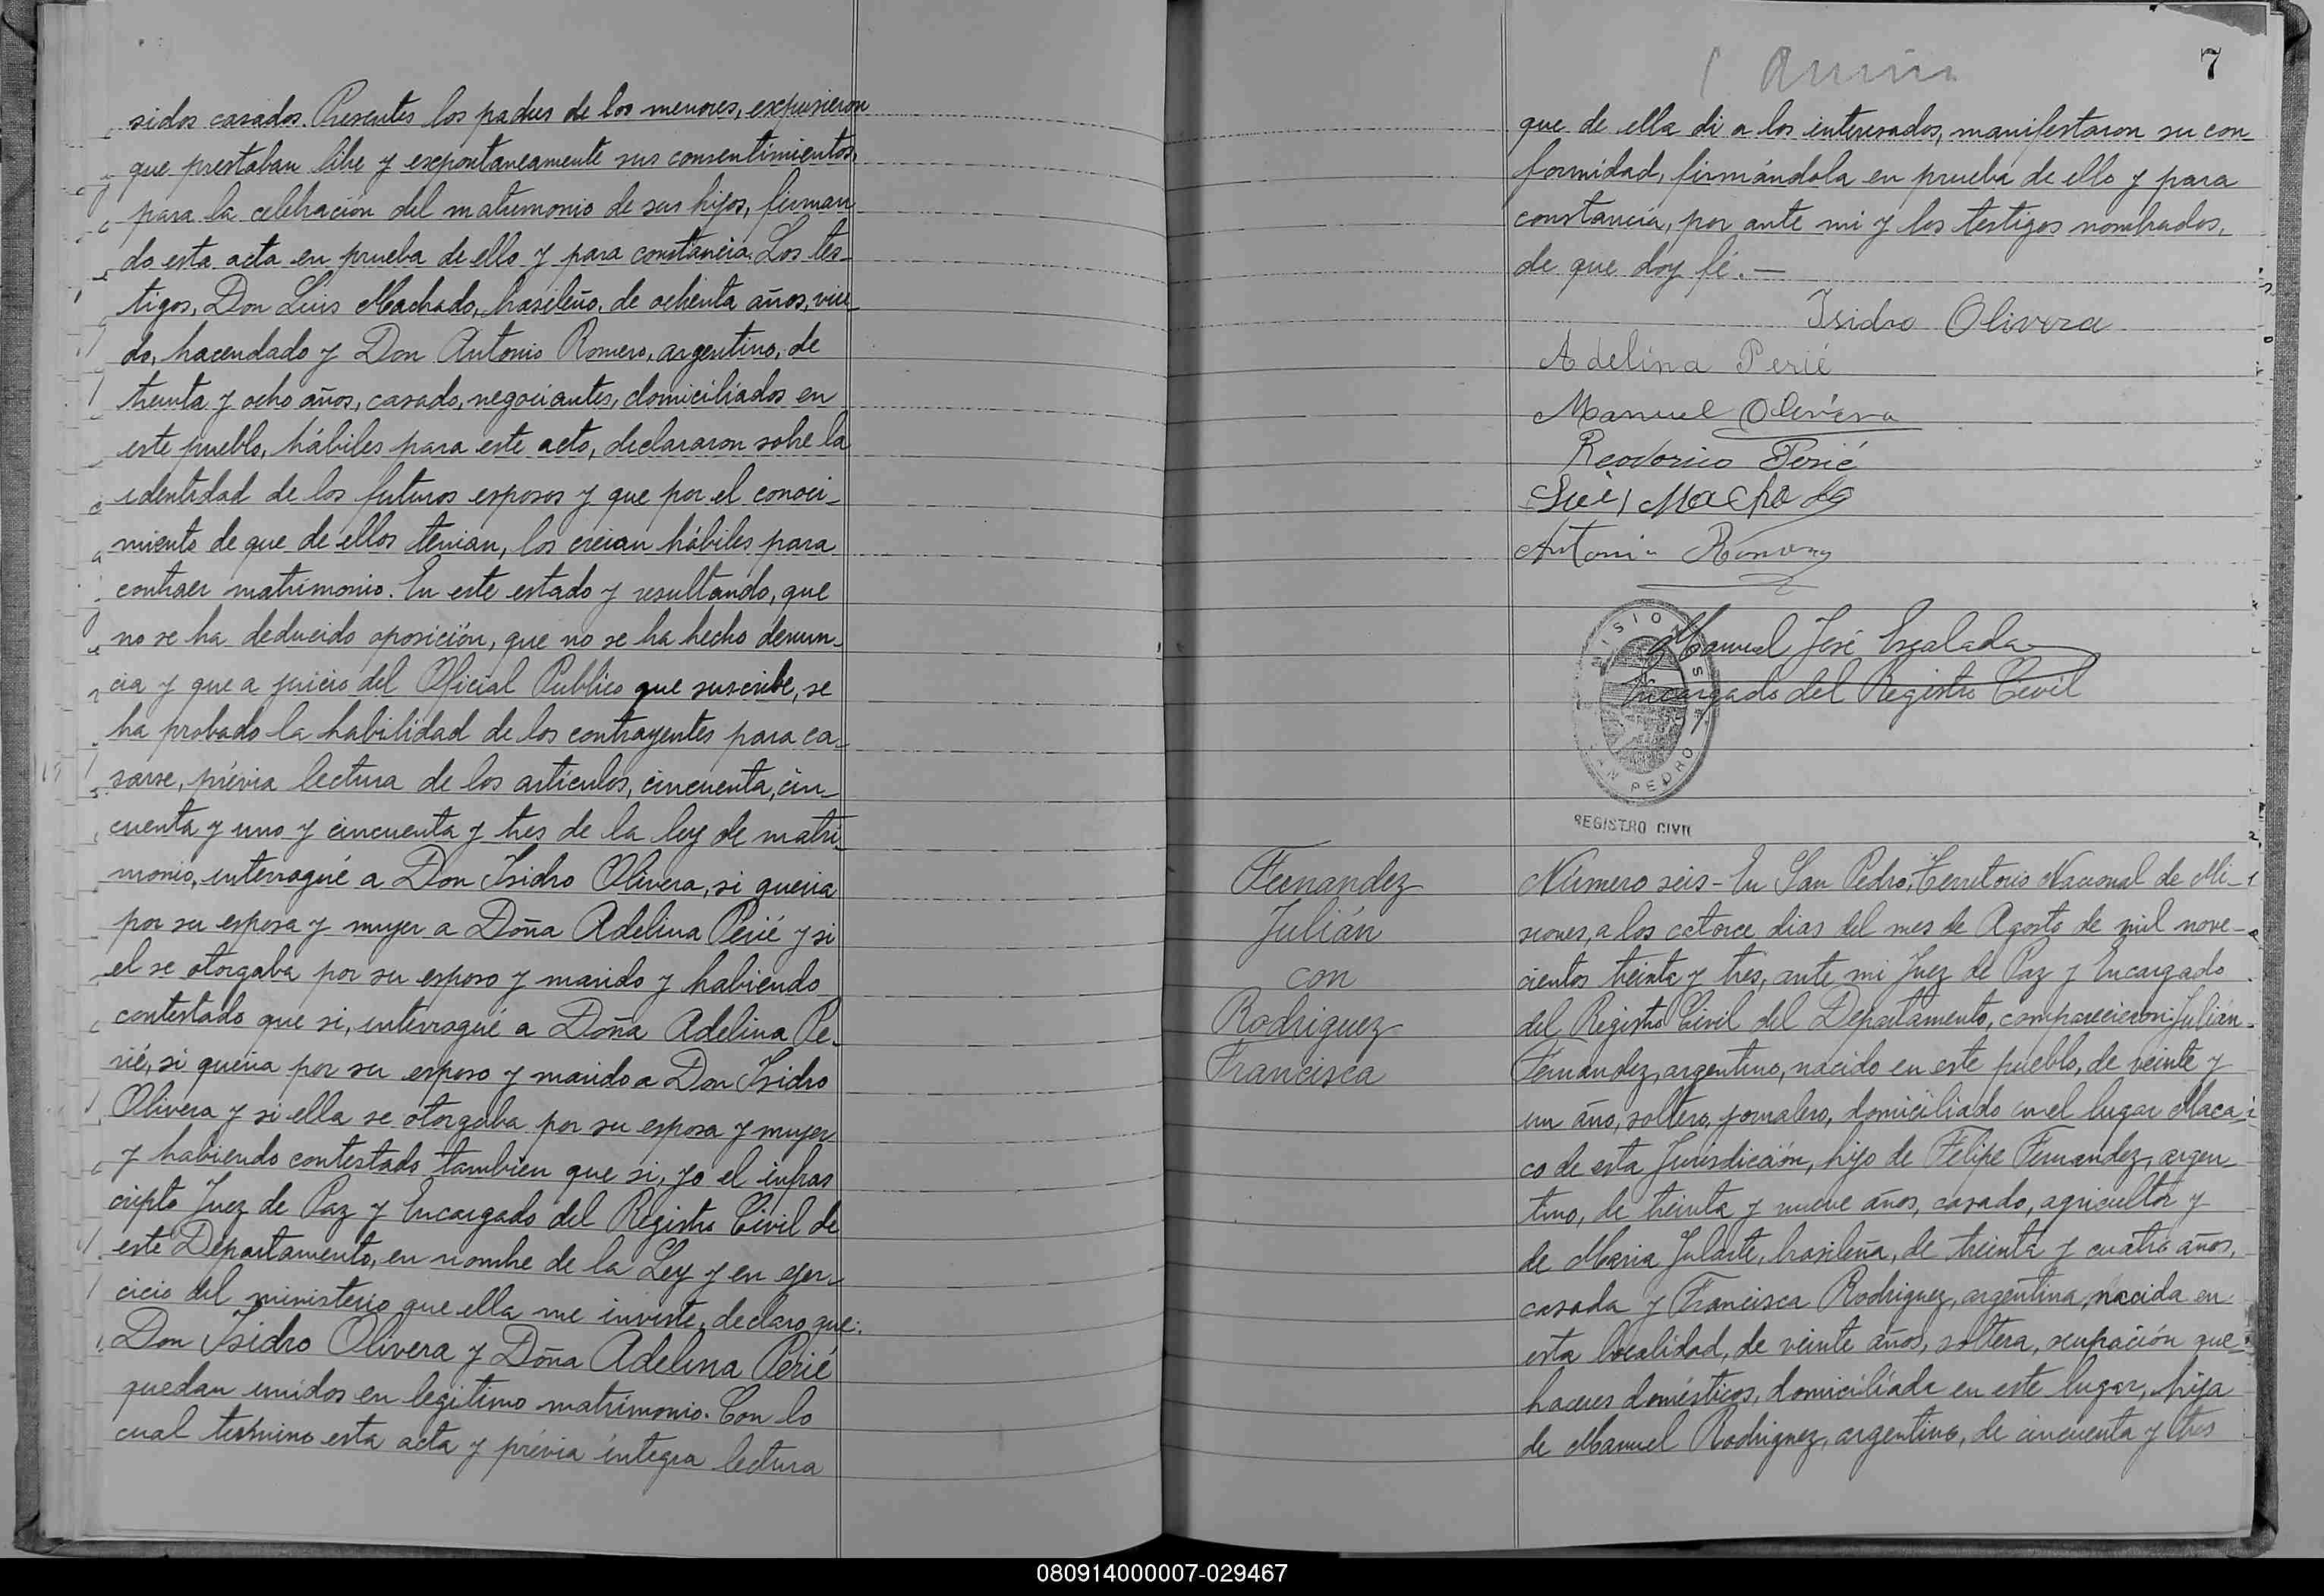 sidos casados. Presentes los padres de los menores, expusieron
que prestaban libre y expontaneamente sus consentimientos,
para la celebración del matrimonio de sus hijos, firman
do esta acta en prueba de ello y para constancia. Los tes-
tigos, Don Luis Machado, brasileño, de ochenta años, viu-
do, hacendado y Don Antonio Romero, argentino, de
treinta y ocho años, casado, negociantes, domiciliados en
este pueblo, hábiles para este acto, declararon sobre la
identidad de los futuros esposos y que por el conoci-
miento de que de ellos tenian, los creian hábiles para
contraer matrimonio. En este estado y resultando, que
no se ha deducido oposición, que no se ha hecho denun-
cia y que a juicio del Oficial Publico que suscribe, se
ha probado la habilidad de los contrayentes para ca-
sarse, prévia lectura de los artículos, cincuenta, cin-
cuenta y uno y cincuenta y tres de la ley de matri-
monio, interrogué a Don Isidro Olivera, si queria
por su esposa y mujer a Doña Adelina Perié y si
el se otorgaba por su esposo y marido y habiendo
contestado que si, interrogué a Doña Adelina Pe-
rié, si queria por su esposo y marido a Don Isidro
Olivera y si ella se otorgaba por su esposa y mujer
y habiendo contestado tambien que si, yo el infras
cripto Juez de Paz y Encargado del Registro Civil de
este Departamento, en nombre de la Ley y en ejer-
cicio del ministerio que ella me inviste, declaro que:
Don Isidro Olivera y Doña Adelina Perié
quedan unidos en legitimo matrimonio. Con lo
cual termino esta acta y prévia íntegra lectura
7
que de ella di a los interesados, manifestaron su con
formidad, firmándola en prueba de ello y para
constancia, por ante mi y los testigos nombrados,
de que doy fé.—
Isidro Olivera
Adelina Perié
Manuel Olivera
Reodorico Perié
Luis Machado
Antonio Romero
Manuel José Escalada
Encargado del Registro Civil
MISIONES
SAN PEDRO
REGISTRO CIVIL
Fernandez
Julián
con
Rodriguez
Francisca
Número seis - En San Pedro, Territorio Nacional de Mi-
siones, a los catorce dias del mes de Agosto de mil nove-
cientos treinta y tres, ante mi Juez de Paz y Encargado
del Registro Civil del Departamento, comparecieron: Julián
Fernandez, argentino, nacido en este pueblo, de veinte y
un año, soltero, jornalero, domiciliado en el lugar Maca-
co de esta Jurisdicción, hijo de Felipe Fernandez, argen-
tino, de treinta y nueve años, casado, agricultor y
de Maria Jularte, brasileña, de treinta y cuatro años,
casada y Francisca Rodriguez, argentina, nacida en
esta localidad, de veinte años, soltera, ocupación que-
haceres domésticos, domiciliada en este lugar, hija
de Manuel Rodriguez, argentino, de cincuenta y tres
080914000007-029467